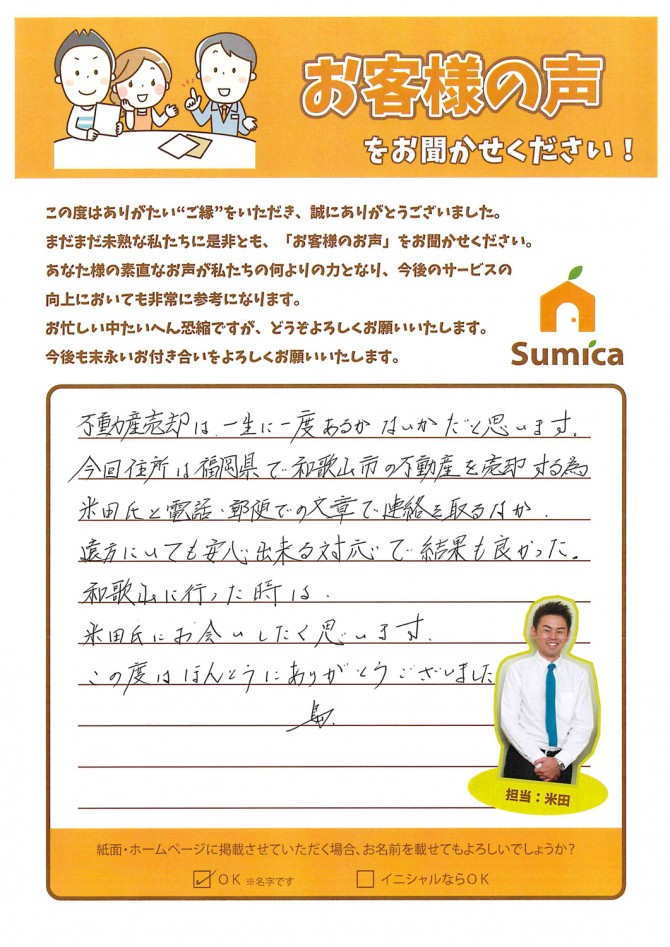 お客様の声
をお聞かせください！
この度はありがたい“ご縁”をいただき、誠にありがとうございました。
まだまだ未熟な私たちに是非とも、「お客様のお声」をお聞かせください。
あなた様の素直なお声が私たちの何よりの力となり、今後のサービスの
向上においても非常に参考になります。
お忙しい中たいへん恐縮ですが、どうぞよろしくお願いいたします。
今後も末永いお付き合いをよろしくお願いいたします。
Sumica
不動産売却は、一生に一度あるかないかだと思います。
今回住所は福岡県で和歌山市の不動産を売却する為
米田氏と電話・郵便での文章で連絡を取るなか、
遠方にいても安心出来る対応で結果も良かった。
和歌山に行った時は、
米田氏にお会いしたく思います。
この度はほんとうにありがとうございました
担当：米田
紙面・ホームページに掲載させていただく場合、お名前を載せてもよろしいでしょうか？
☑ OK ※名字です □ イニシャルならOK